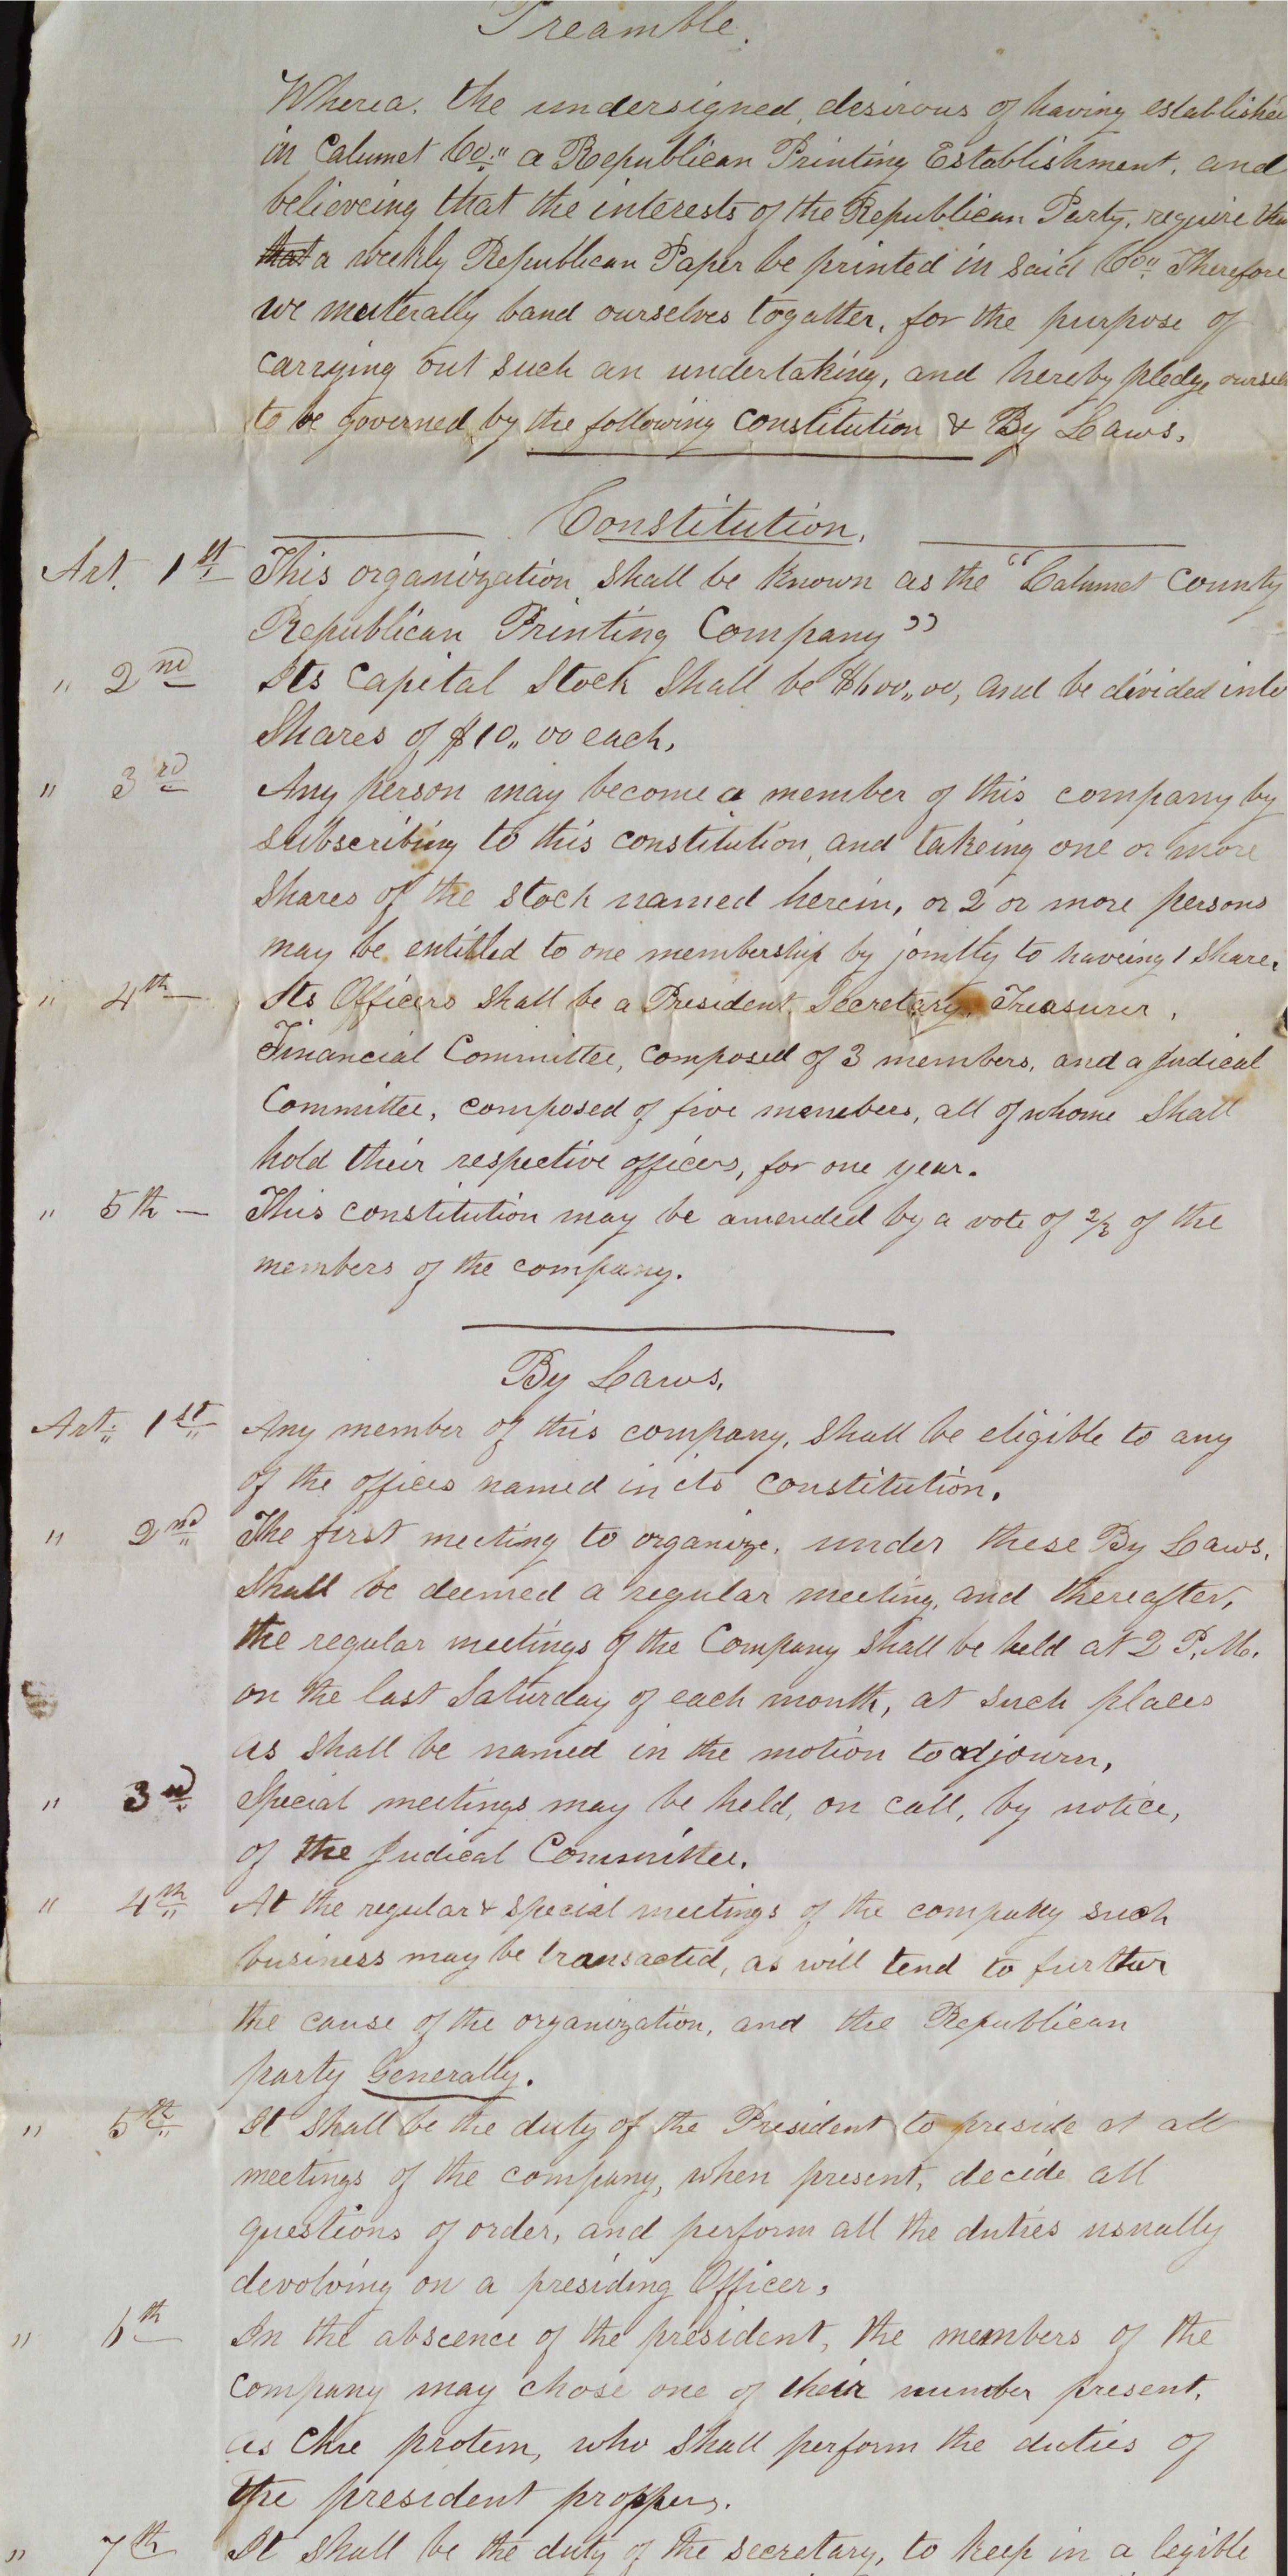 Preamble.
Wherea. the undersigned, desirous of having established
in Calumet Co.," a Republican Printing Establishment, and
believeing that the interests of the Republican Party, require tha
that a weekly Republican Paper be printed in said Co" Therefore
we muterally band ourselves togatter, for the purpose of
carrying out such an undertaking, and hereby pledge oursel
to be governed by the following constitution & By Laws.
Constitution.
Art. 1st This organization shall be known as the "Calumet County
Republican Printing Company"
" 2nd Its Capital Stock Shall be $600,,00, and be divided into
Shares of $10,,00 each,
" 3rd Any person may become a member of this company by
subscribing to this constitution, and takeing one or more
shares of the stock named herein, or 2 or more persons
may be entitled to one membership by jointly to haveing 1 share.
" 4th — Its Officers shall be a President, Secretary, Treasurer,
Financial Committee, composed of 3 members, and a Judical
Committee, composed of five members, all of whome shall
hold their respective officers, for one year.
" 5th — This constitution may be amended by a vote of 2/3 of the
members of the company.
By Laws,
Art. 1st Any member of this company, shall be eligible to any
of the offices named in its constitution.
" 2nd The first meeting to organize, under these By Laws,
shall be deemed a regular meeting, and thereafter,
the regular meetings of the Company shall be held at 2 P.M.
on the last Saturday of each month, at such places
as shall be named in the motion to adjourn,
" 3rd Special meetings may be held, on call, by notice,
of the Judical Committee.
" 4th At the regular & special meetings of the company such
business may be transacted, as will tend to further
the cause of the organization, and the Republican
party Generally.
" 5th It shall be the duty of the President to preside at all
meetings of the company, when present, decide all
questions of order, and perform all the duties usually
devolving on a presiding Officer,
" 6th In the abscence of the president, the members of the
company may chose one of their number present,
as Chr protem, who shall perform the duties of
the president proppers.
" 7th It shall be the duty of the secretary, to keep in a legible